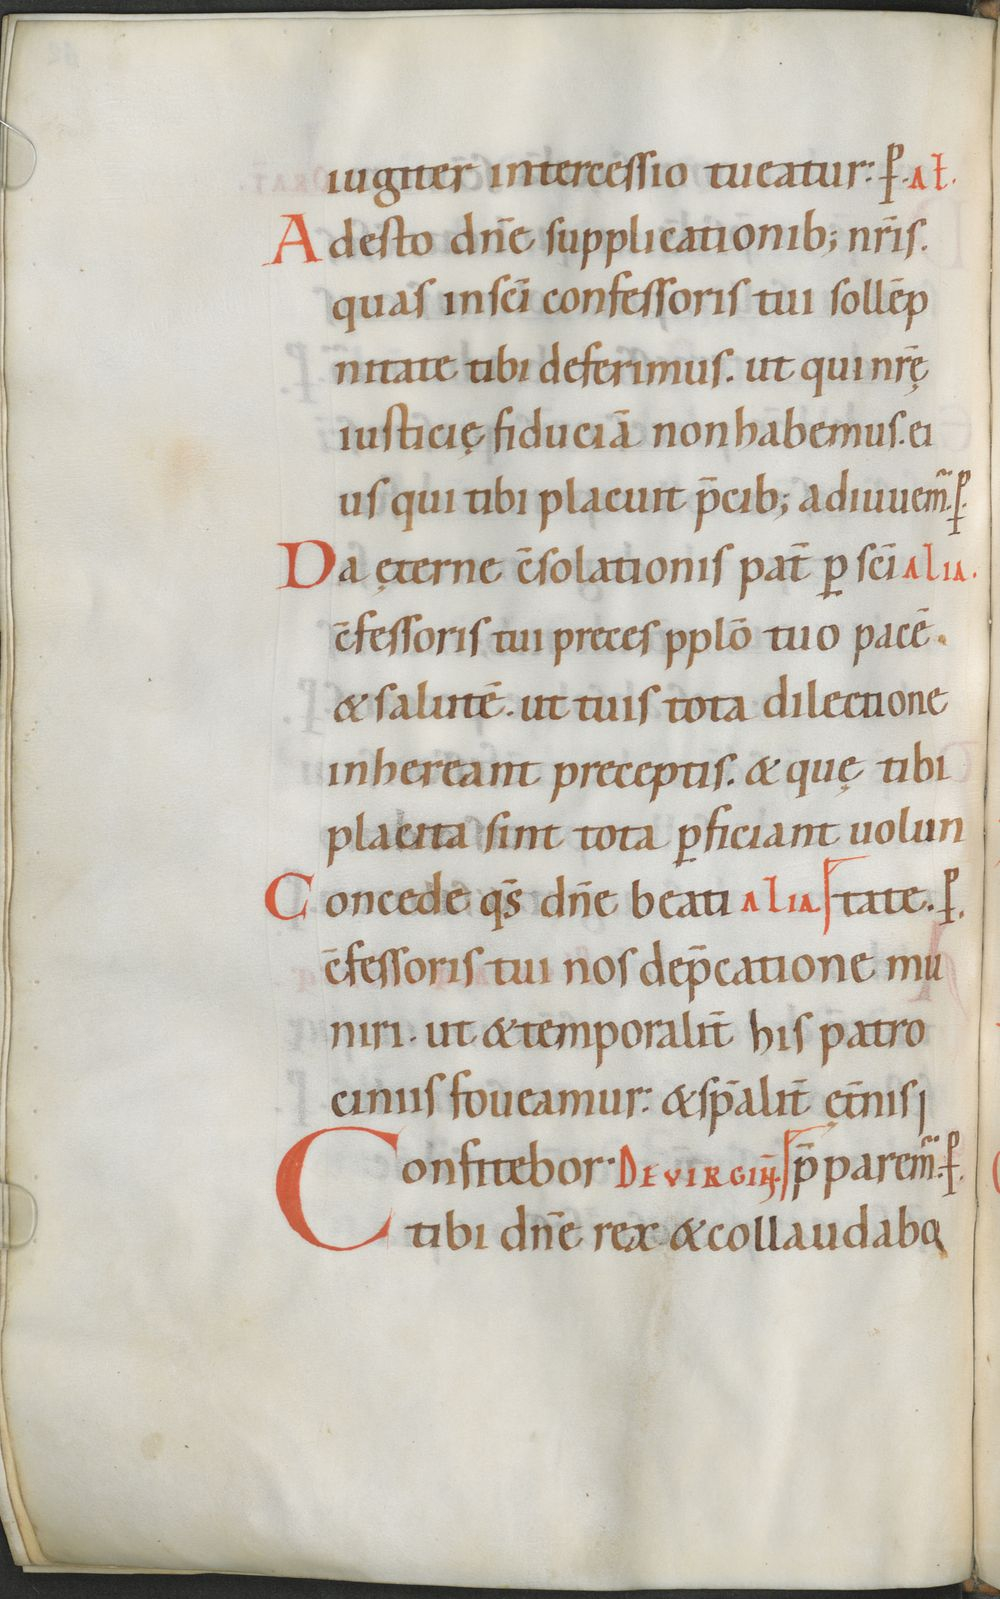 iugiter intercessio tueatur: p̄. al̄.
Adesto dn̄e supplicationib; nr̄is.
quas in sc̄i confessoris tui sollēp
nitate tibi deferimus. ut qui nr̄ę
iusticię fiduciā non habemus. ei
us qui tibi placuit p̄cib; adiuuem̄. p̄.
Da ęterne c̄solationis pat̄ ꝑ sc̄i alia.
c̄fessoris tui preces pplō tuo pacē.
& salutē. ut tuis tota dilectione
inhereant preceptis. & quę tibi
placita sint tota ꝑficiant uolun
Concede qs̄ dn̄e beati alia. tate. p̄.
c̄fessoris tui nos dep̄catione mu
niri. ut & temporalit̄ his patro
ciniis foueamur: & sp̄alit̄ ęt̄nis
Confitebor. De virgin̄. p̄parem̄. p̄.
tibi dn̄e rex & collaudabo